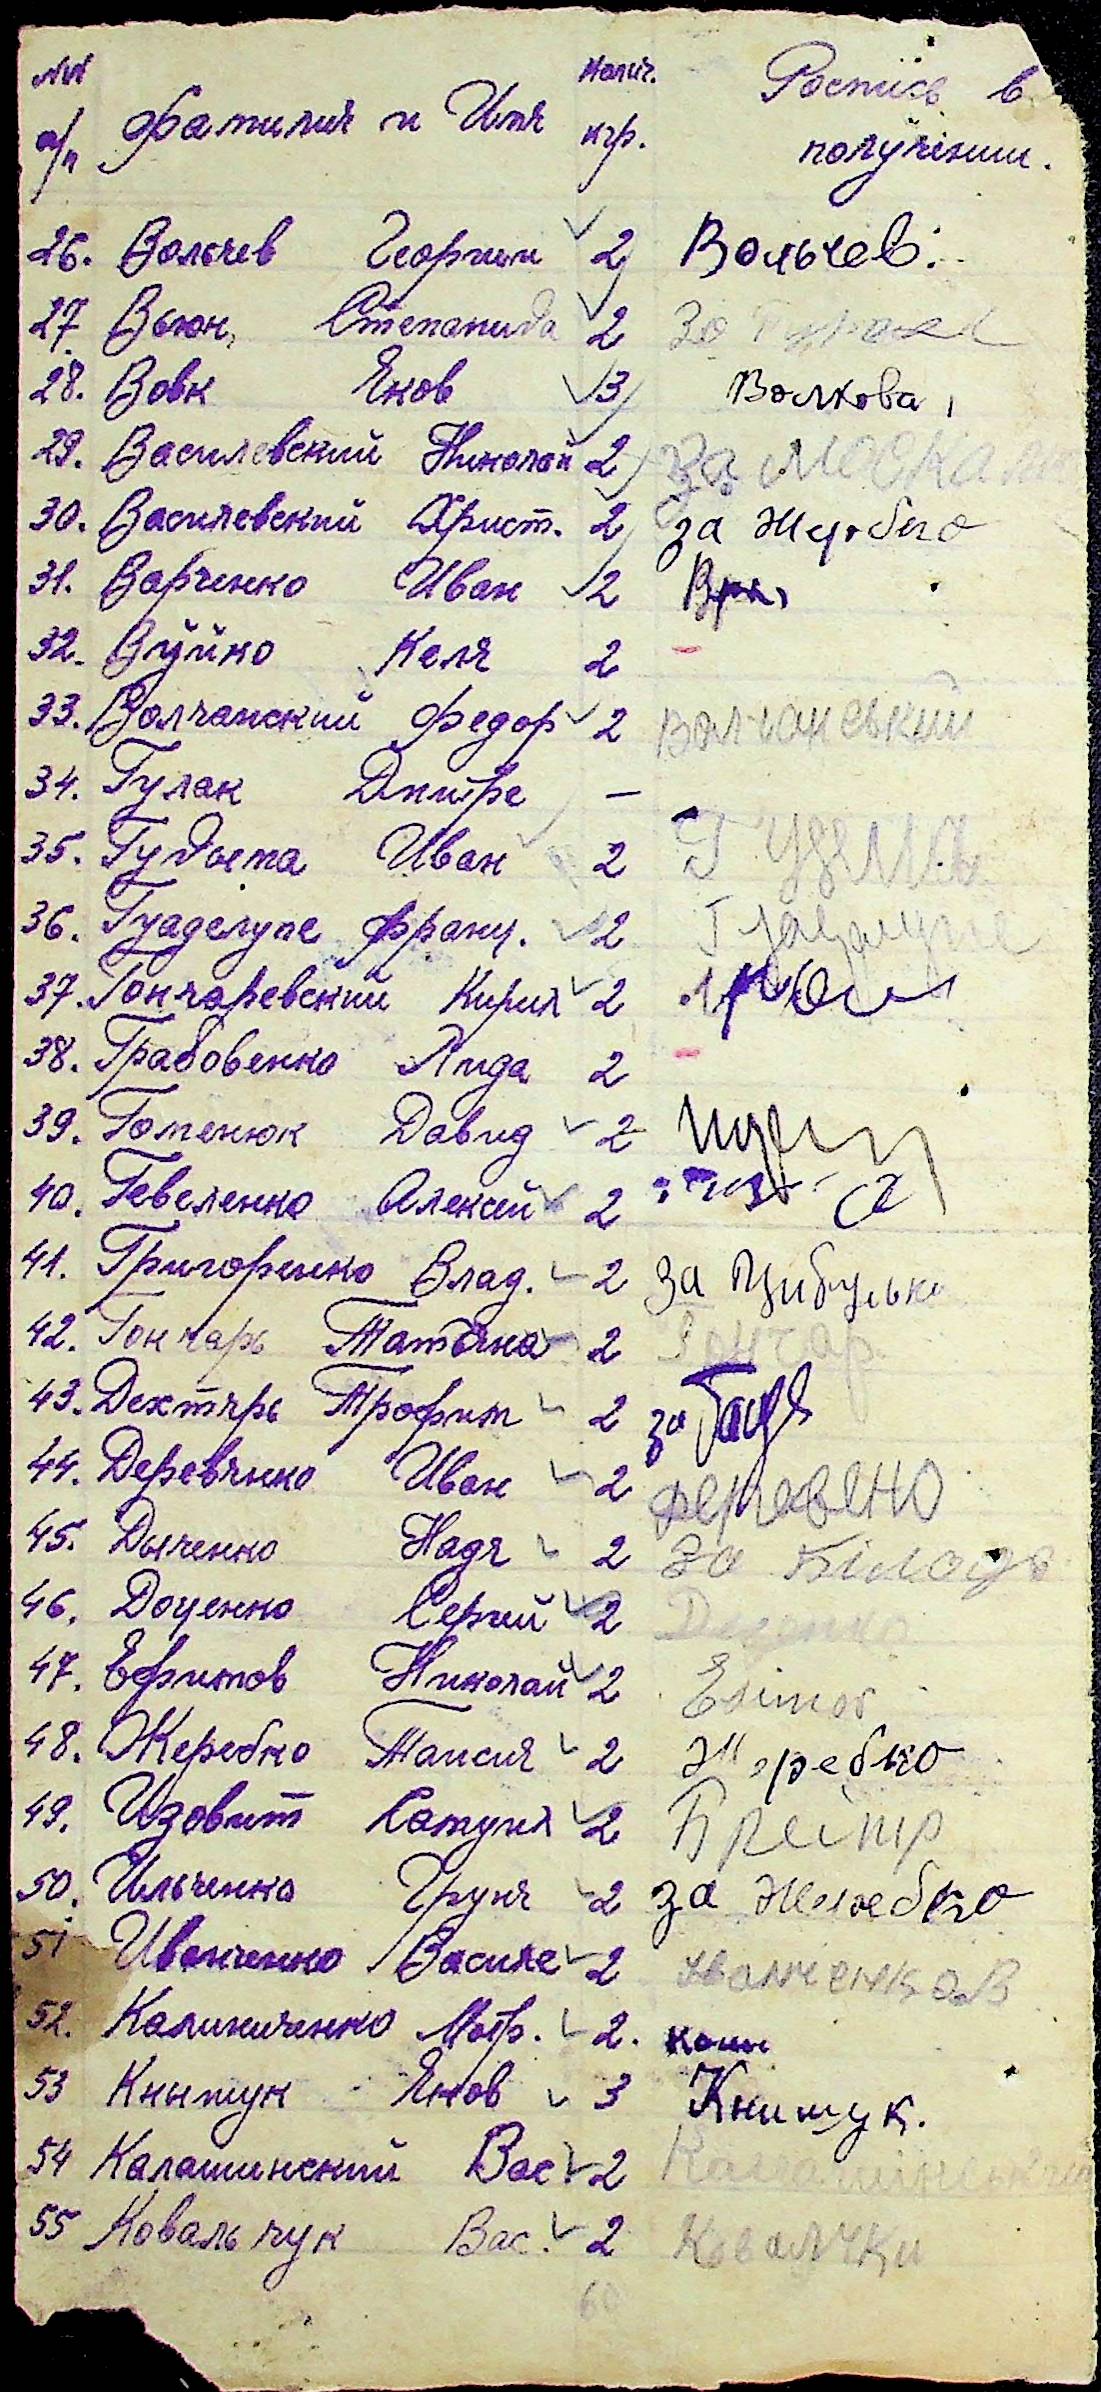 №№ Фамилия и Имя Колич. Роспись в
п/п кгр. получении.
26. Вольчев Георгий 2 Вольчев.
27. Вьюн, Степанида 2 За
28. Вовк Яков 3 Волкова,
29. Василевский Николай 2 За
30. Василевский Христ. 2 за Жеребко
31. Варченко Иван 2
32. Вуйко Келя 2 -
33. Волчанский Федор 2 Волчанський
34. Гулак Дмитре —
35. Гудыма Иван 2 Гудзма
36. Гуаделупе Франц. 2
37. Гончаревский Кирил 2
38. Грабовенко Лида 2 -
39. Гоменюк Давид 2
40. Гевеленко Алексей 2
41. Григоренко Влад. 2 За Цибулько
42. Гончарь Татьяна 2 Гончар
43. Дехтярь Трофим 2 за
44. Деревянко Иван 2
45. Дыченко Надя 2 За
46. Доценко Сергий 2 Доценко
47. Ефимов Николай 2 Ефимов
48. Жеребко Таисия 2 Жеребко
49. Изовит 2
50. Ильченко Груня 2 за Жеребко
51 Иванченко Василе 2
52. Калиниченко Мотр. 2. Кали
53 Кнышук Яков 3 Книшук.
54 Калашинский Вас. 2
55 Ковальчук Вас. 2
60